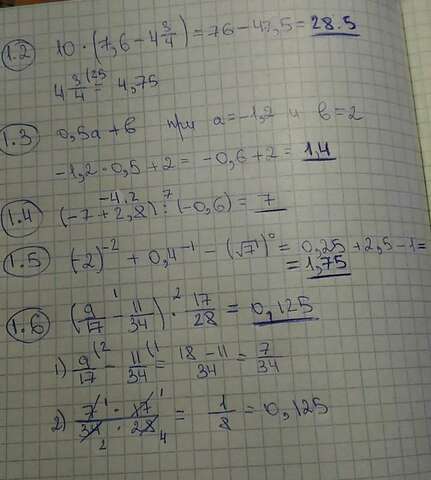 1.2 10 · (7,6 - 4 3/4) = 76 - 47,5 = 28.5
4 3/4 (25 = 4,75
1.3 0,5a + b при a = -1,2 и b = 2
-1,2 · 0,5 + 2 = -0,6 + 2 = 1,4
-4.2 7
1.4 (-7 + 2,8) : (-0,6) = 7
1.5 (-2)^-2 + 0,4^-1 - (√7)^0 = 0,25 + 2,5 - 1 =
= 1,75
1.6 (9/17 1 - 11/34) 2 · 17/28 = 0,125
1) 9/17 (2 - 11/34 (1 = 18 - 11/34 = 7/34
2) 7 1 · 17 1/34 2 · 28 4 = 1/8 = 0,125